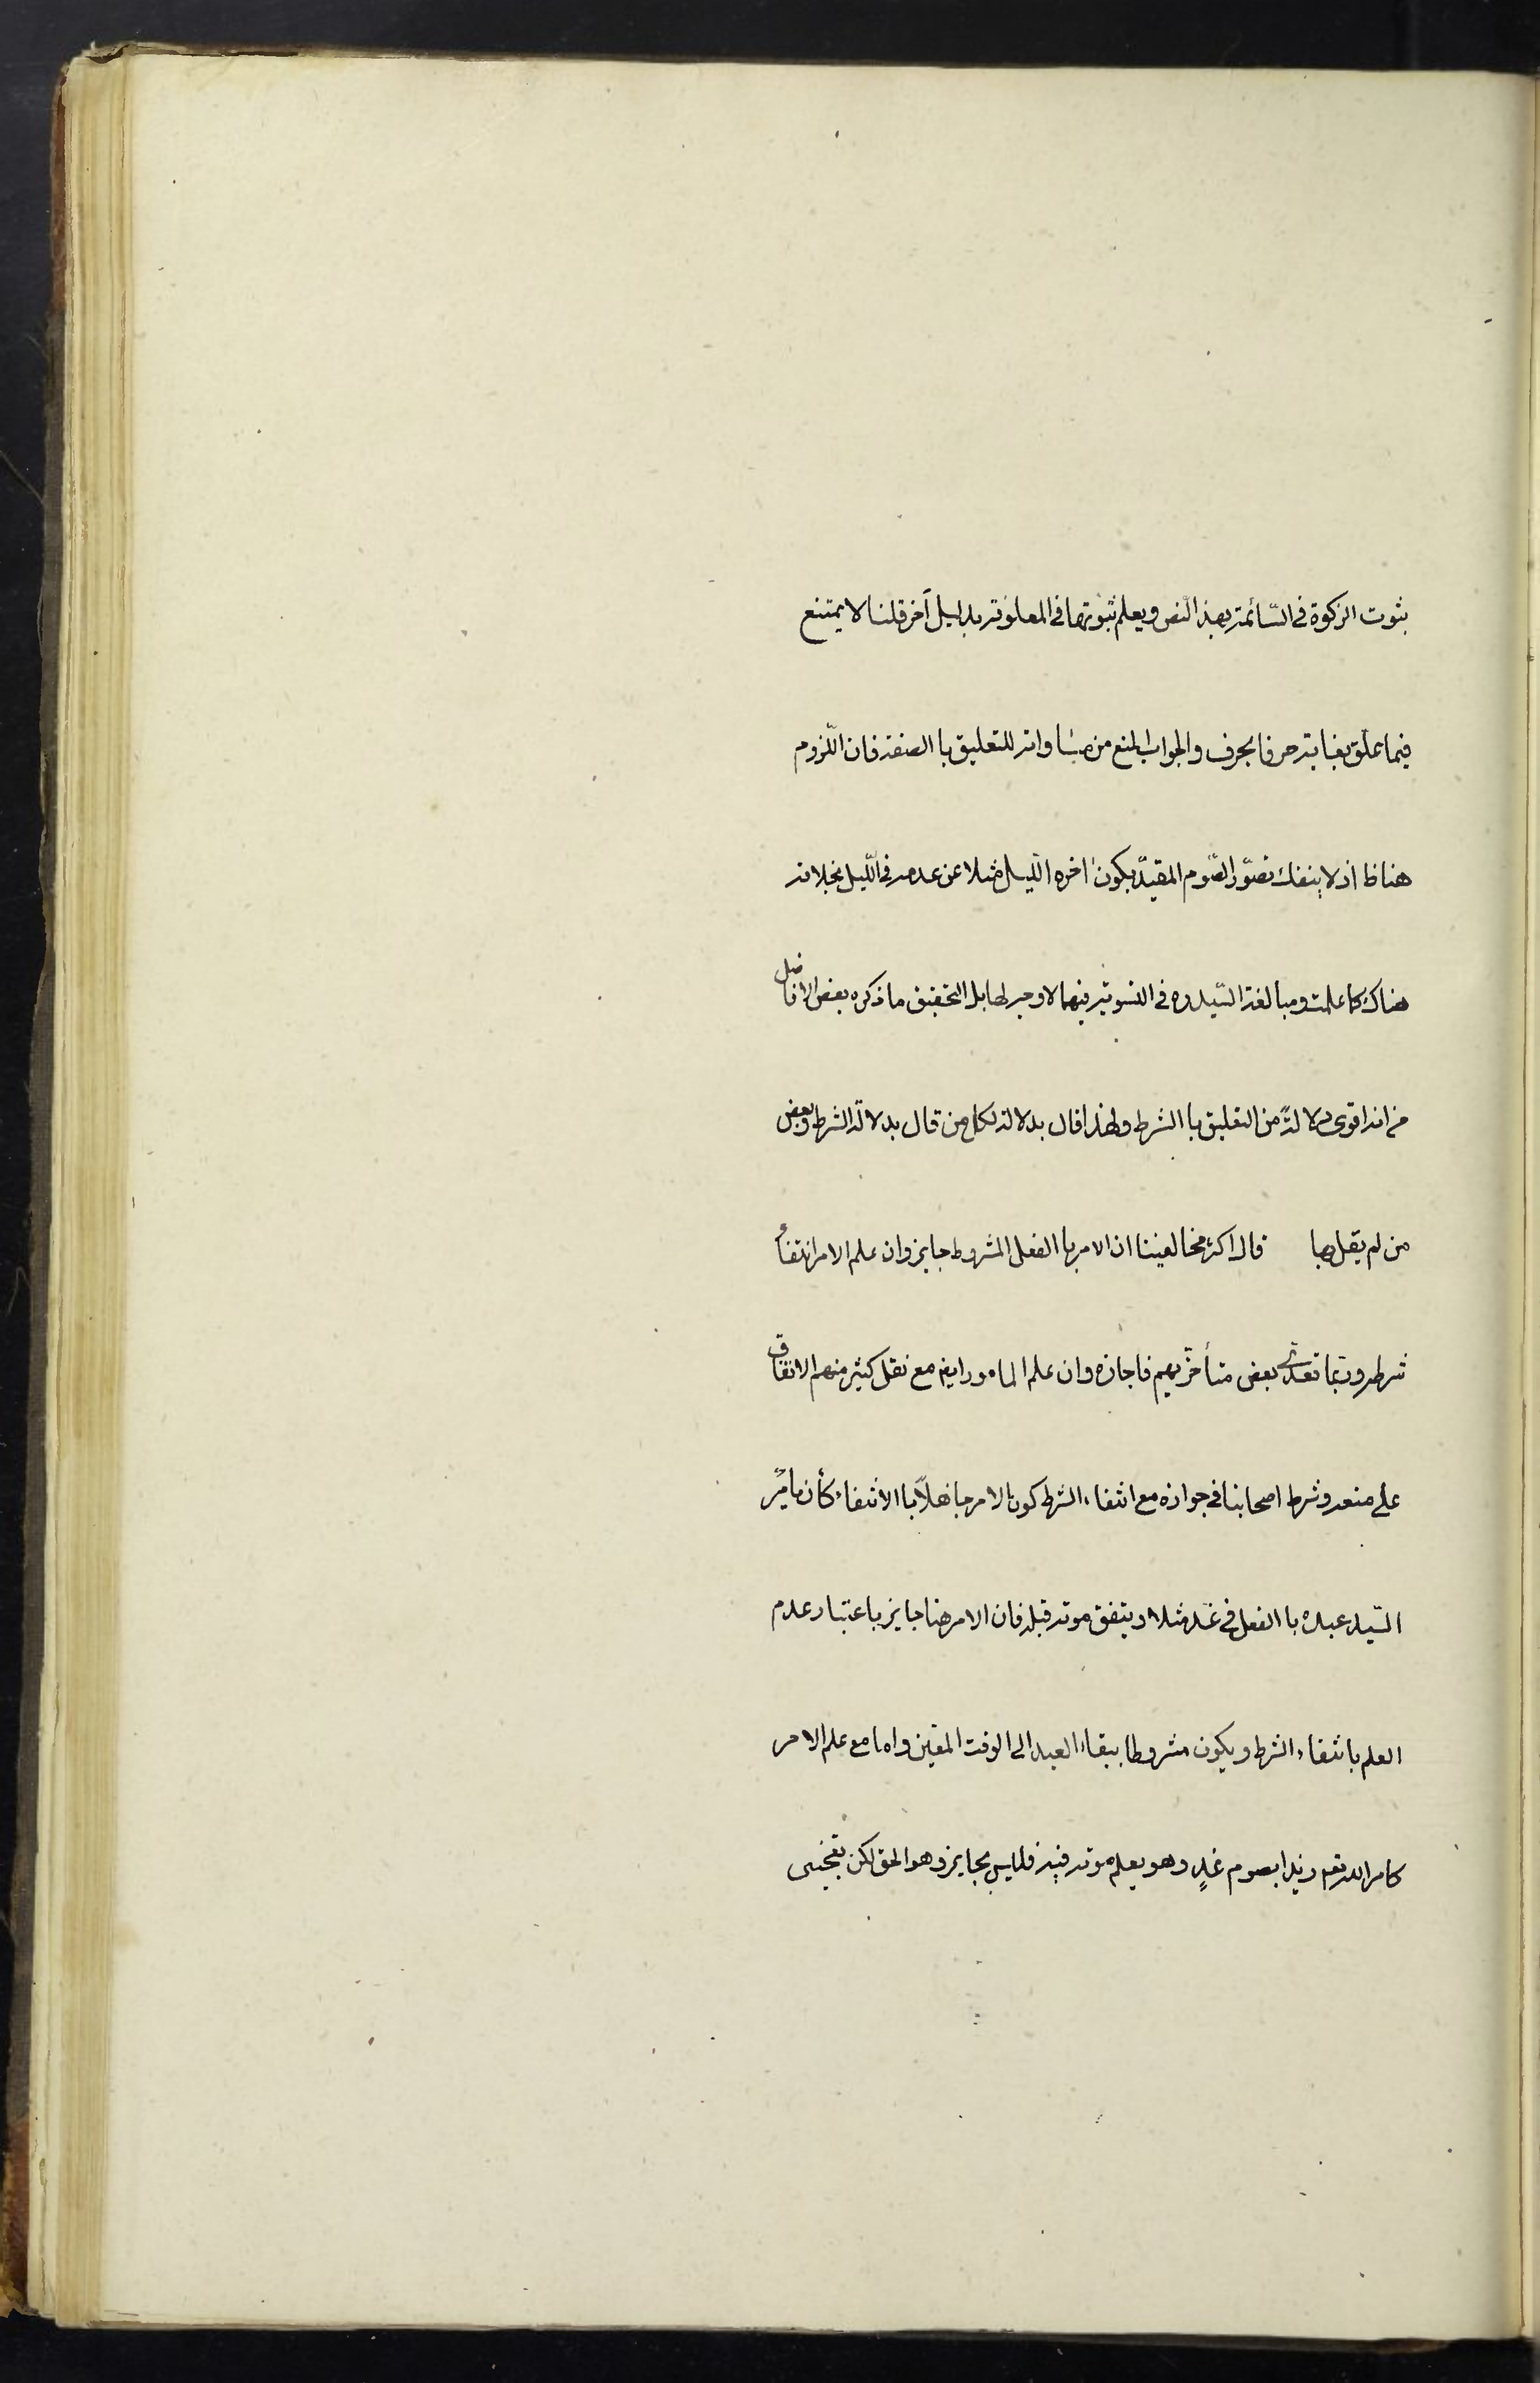 ثبوت الزكوة في السّائمة بهذا النّص ويعلم ثبوتها في المعلوفة بدليل آخر قلنا لا يمتنع
فيما علّق بغاية حرفا بحرف والجواب المنع من مساواته للتعليق با الصفة فان اللّزوم
هنا ظا اذ لا ينفك تصوّر الصّوم المقيّد بكون اخره اللّيل مثلا عن عدمه في اللّيل بخلافه
هناك كما علمت ومبالغة السّيد ره في التسوية بينهما لا وجه لها بل التحقيق ما ذكره بعض الافاضل
من انه اقوى دلالةً من التعليق با الشرط ولهذا قال بدلالته كل من قال بدلالة الشرط وبعض
من لم يقل بها قال اكثر مخالفينا ان الامر با الفعل المشروط جايز وان علم الامر انتفاء
شرطه وربّما تعدّى بعض متأخّريهم فاجازه وان علم الما مور ايضا مع نقل كثير منهم الاتفاق
على منعه وشرط اصحابنا في جوازه مع انتفاء الشرط كون الامر جاهلًا با الانتفاء كأن يأمر
السّيد عبده با الفعل في غد مثلا ويتفق موته قبله فان الامر هنا جايز باعتبار عدم
العلم بانتفاء الشرط ويكون مشروطا ببقاء العبد الى الوقت المعيّن واما مع علم الامر
كامر الله تعم زيدا بصوم غدٍ وهو يعلم موته فيه فليس بجايز وهو الحق لكن يعجبنى